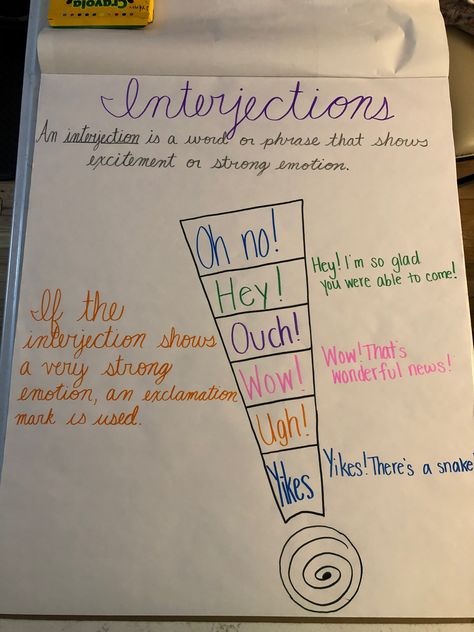 Crayola
Interjections
An interjection is a word or phrase that shows
excitement or strong emotion.
Oh no!
Hey!
Ouch!
Wow!
Ugh!
Yikes
Hey! I'm so glad
you were able to come!
If the
interjection shows
a very strong
emotion, an exclamation
mark is used.
Wow! That's
wonderful news!
Yikes! There's a snake!